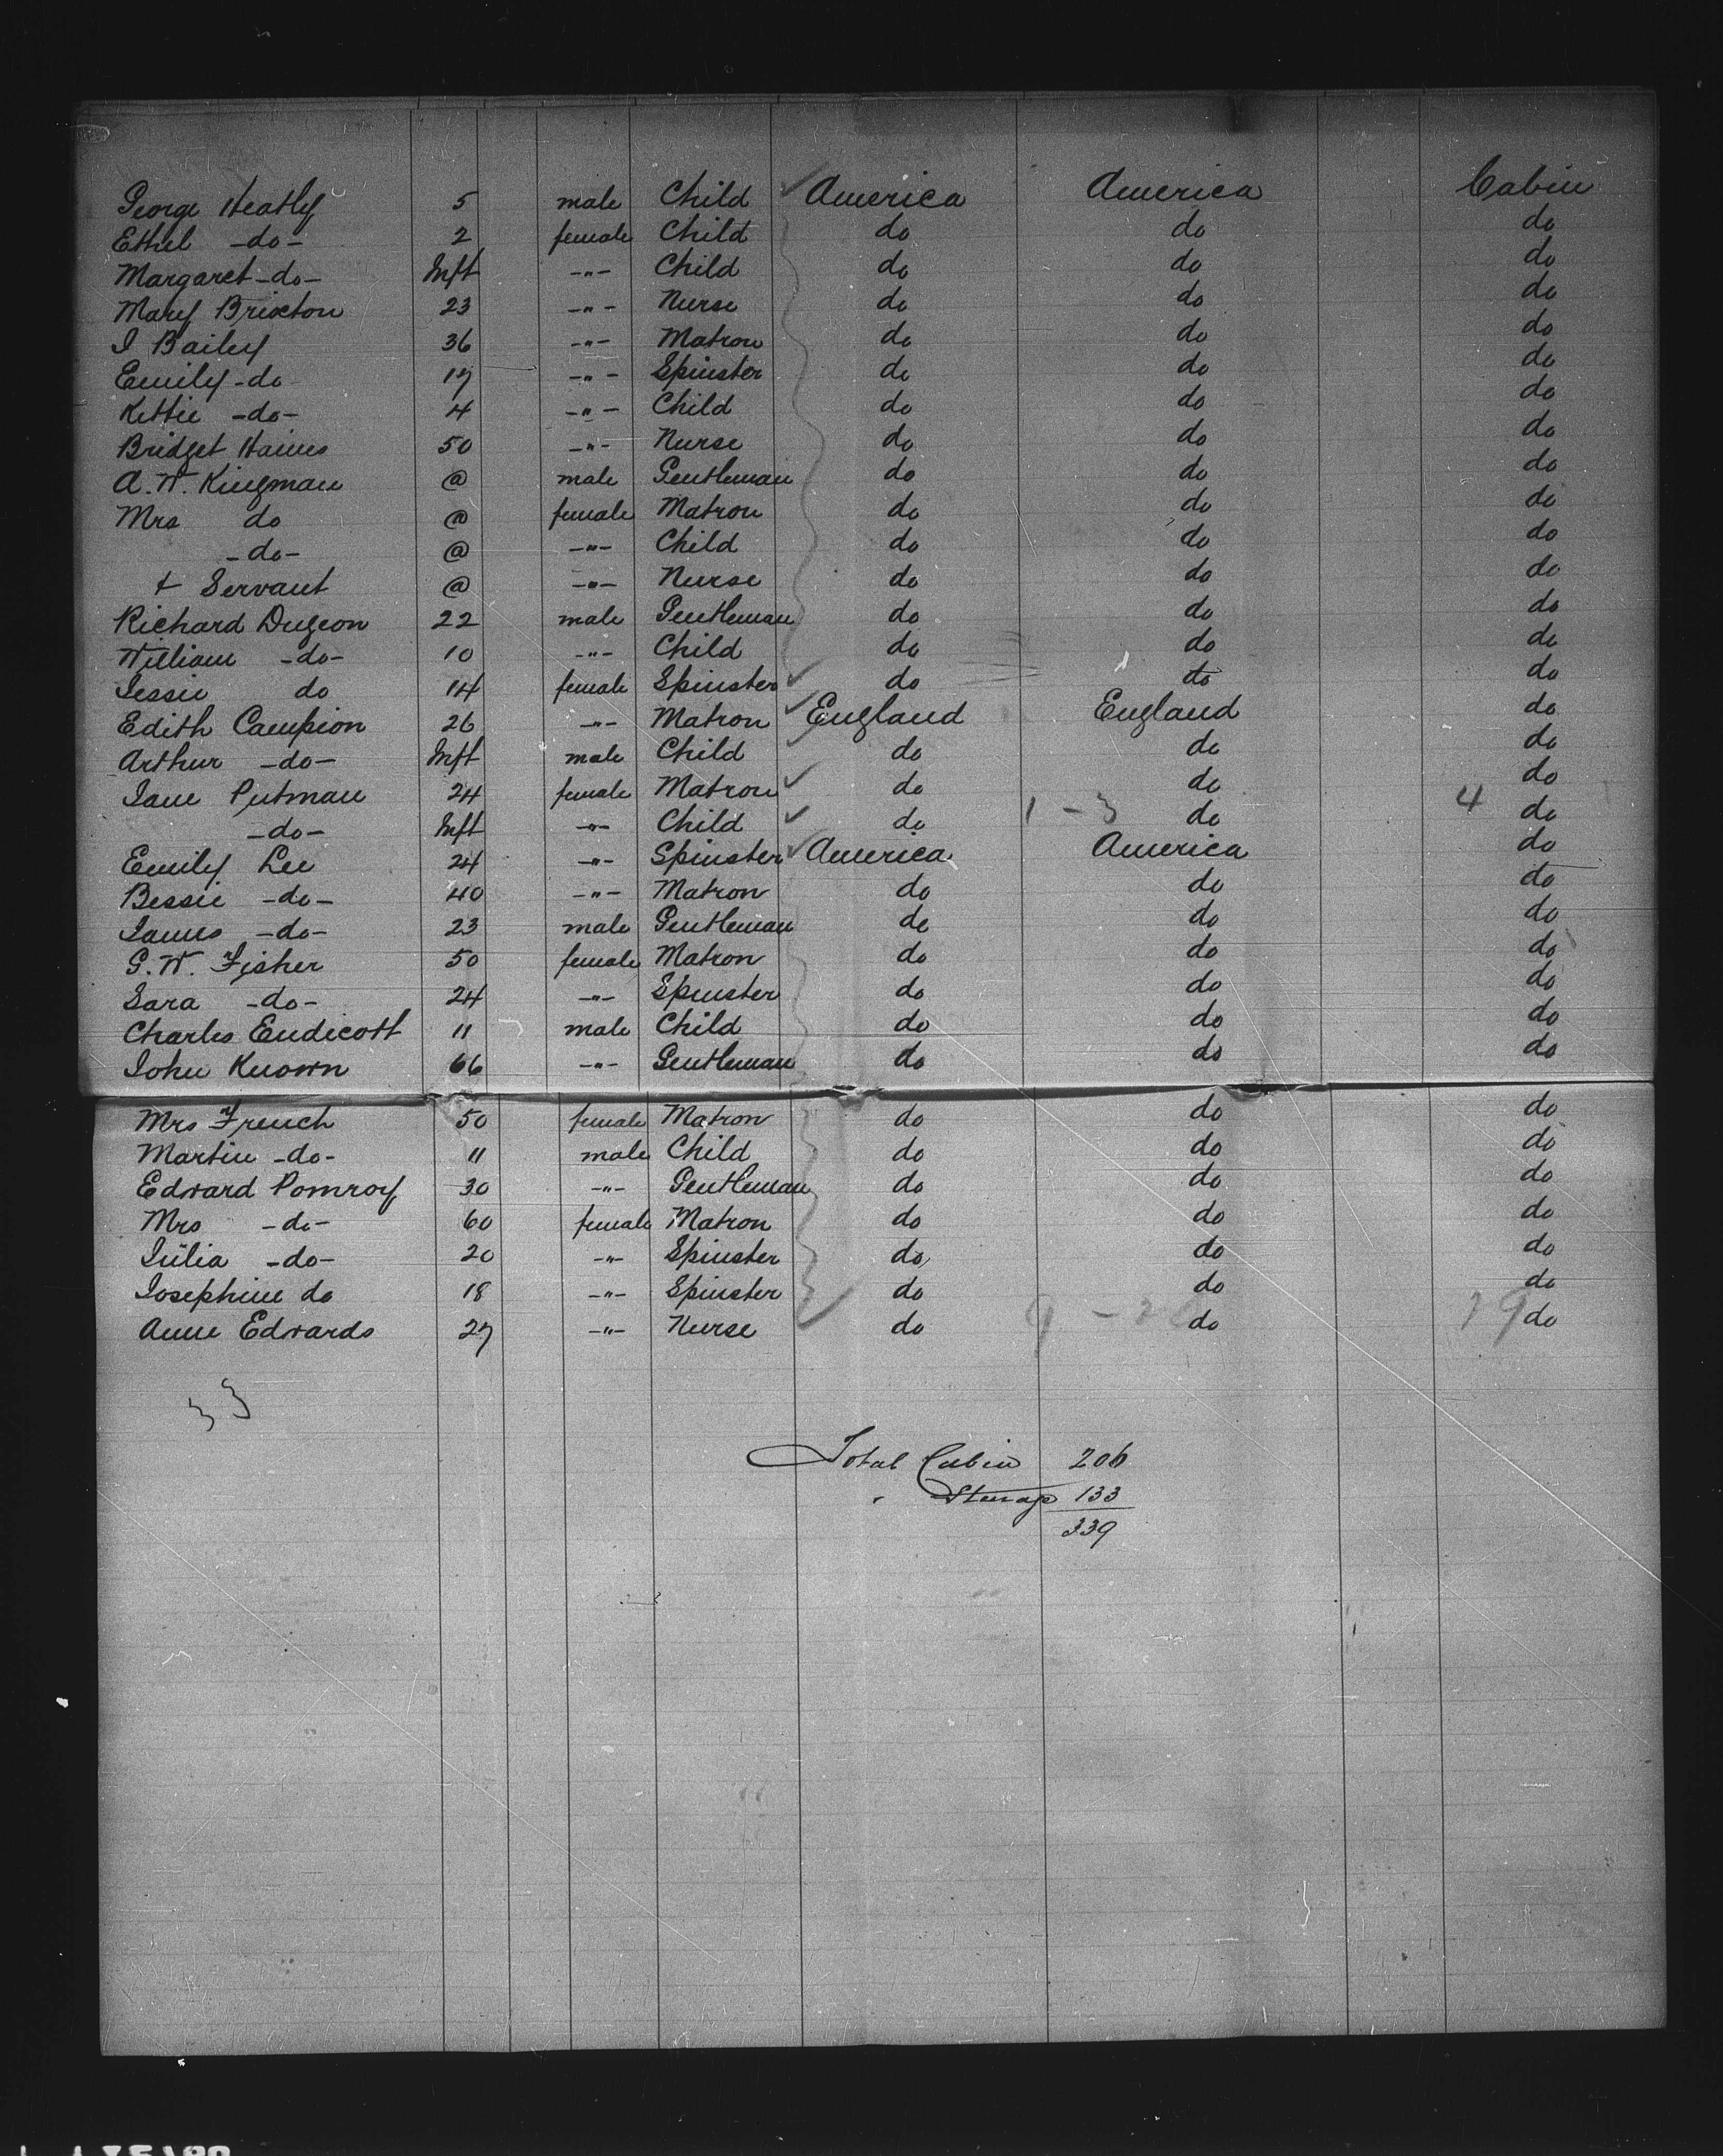 George Heatly 5 male Child America America Cabin
Ethel -do- 2 female Child do do do
Margaret -do- Inft -"- Child do do do
Mary Brixton 23 -"- Nurse do do do
I Bailey 36 -"- Matron do do do
Emily -do 17 -"- Spinster do do do
Kittie -do- 4 -"- Child do do do
Bridget Haines 50 -"- Nurse do do do
A. W. Kingman @ male Gentleman do do do
Mrs do @ female Matron do do do
-do- @ -"- Child do do do
+ Servant @ -"- Nurse do do do
Richard Dugeon 22 male Gentleman do do do
William -do- 10 -"- Child do do do
Jessie do 14 female Spinster do do do
Edith Campion 26 -"- Matron England England do
Arthur -do- Inft male Child do do do
Jane Putman 24 female Matron do do do
-do- Inft -"- Child do 1 - 3 do 4 do
Emily Lee 24 -"- Spinster America America do
Bessie -do- 40 -"- Matron do do do
James -do- 23 male Gentleman do do do
G. W. Fisher 50 female Matron do do do
Sara -do- 24 -"- Spinster do do do
Charles Endicott 11 male Child do do do
John Known 66 -"- Gentleman do do do
Mrs French 50 female Matron do do do
Martin -do- 11 male Child do do do
Edward Pomroy 30 -"- Gentleman do do do
Mrs -do- 60 female Matron do do do
Julia -do- 20 -"- Spinster do do do
Josephine do 18 -"- Spinster do do do
Anne Edwards 27 -"- Nurse do do do
33
Total Cabin 206
" Steerage 133
339